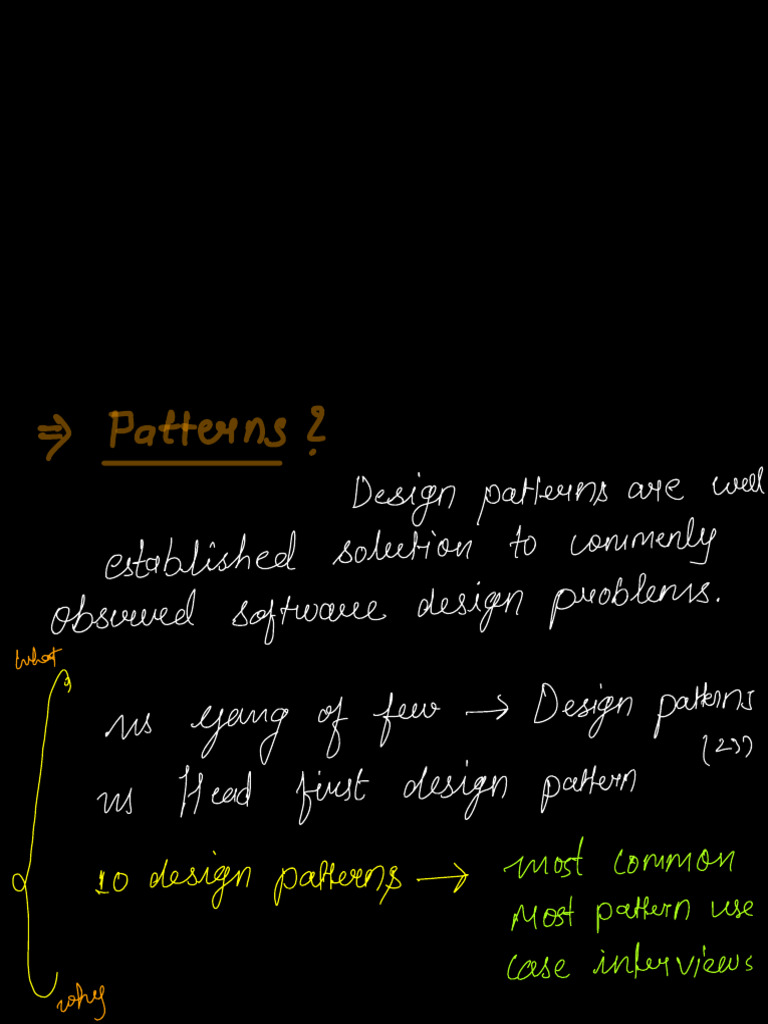 ⇒ Patterns?
Design patterns are well
established solution to commenly
observed software design problems.
what
Gang of few → Design patterns
(23)
Head first design pattern
10 design patterns → most common
Most pattern use
case interviews
why